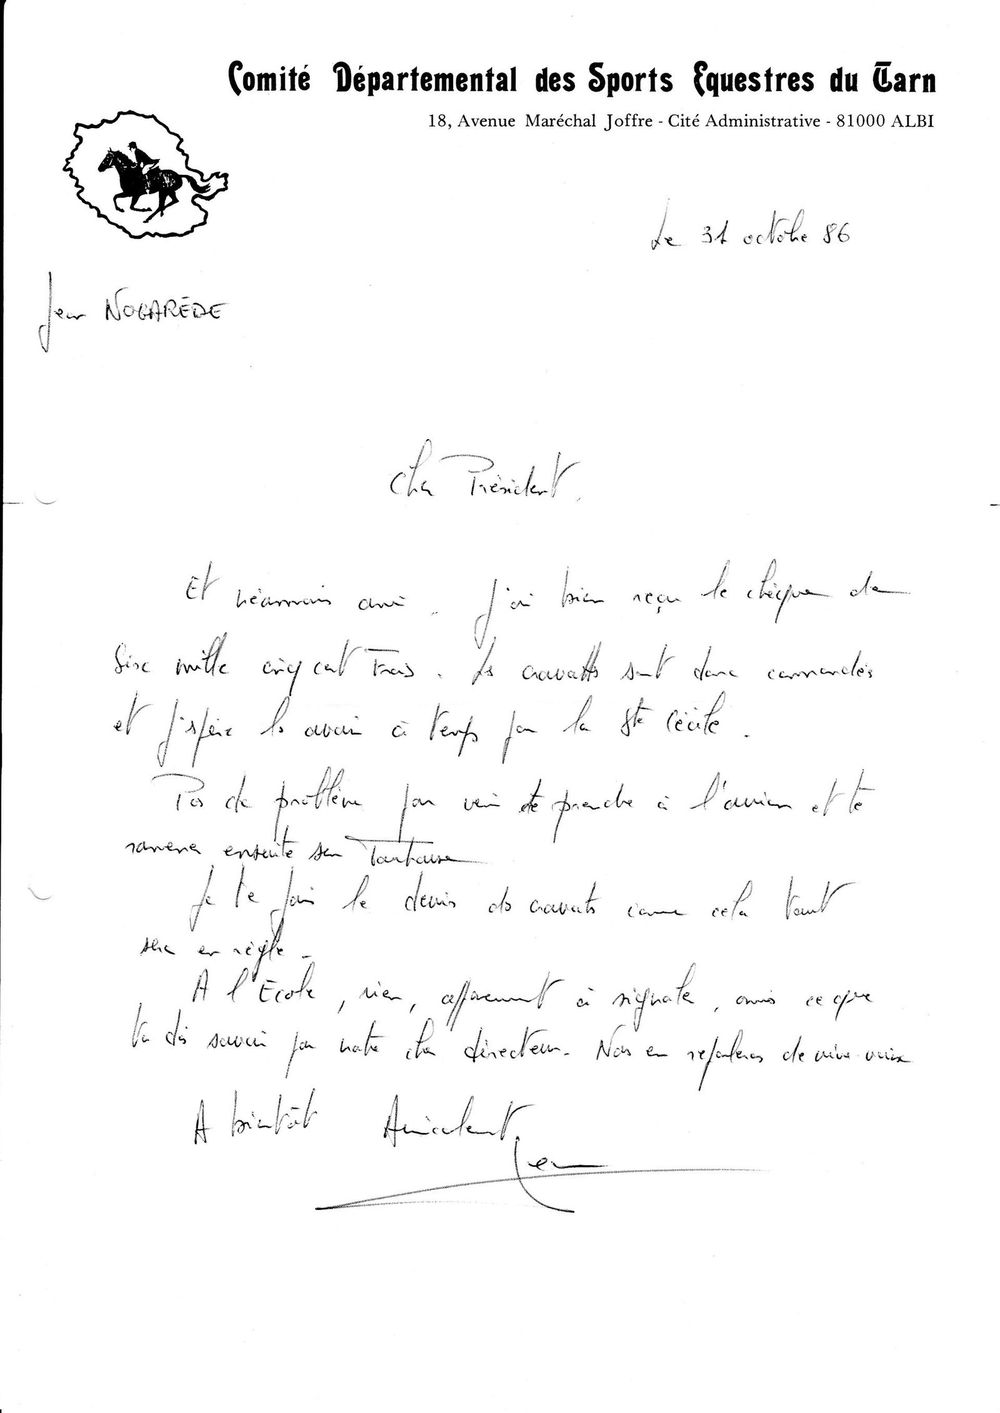 Comité Départemental des Sports Equestres du Tarn
18, Avenue Maréchal Joffre - Cité Administrative - 81000 ALBI
Le 31 octobre 86
Jean NOGARÈDE
Cher Président.
Et néanmoins ami. J'ai bien reçu le chèque de
Six mille cinq cent Frais. Les cravattes sont donc commandés
et j'espère les avoir à temps pour la Ste Cécile.
Pas de problème pour venir te prendre à l'avion et te
ramener ensuite sur Toulouse
Je te fais le devis des cravates comme cela tout
sera en règle.
A l'Ecole, rien, apparemment à signaler, mais ce que
tu dois savoir par notre cher directeur. Nous en reparlerons de vive voix
A bientôt Amicalement,
Jean